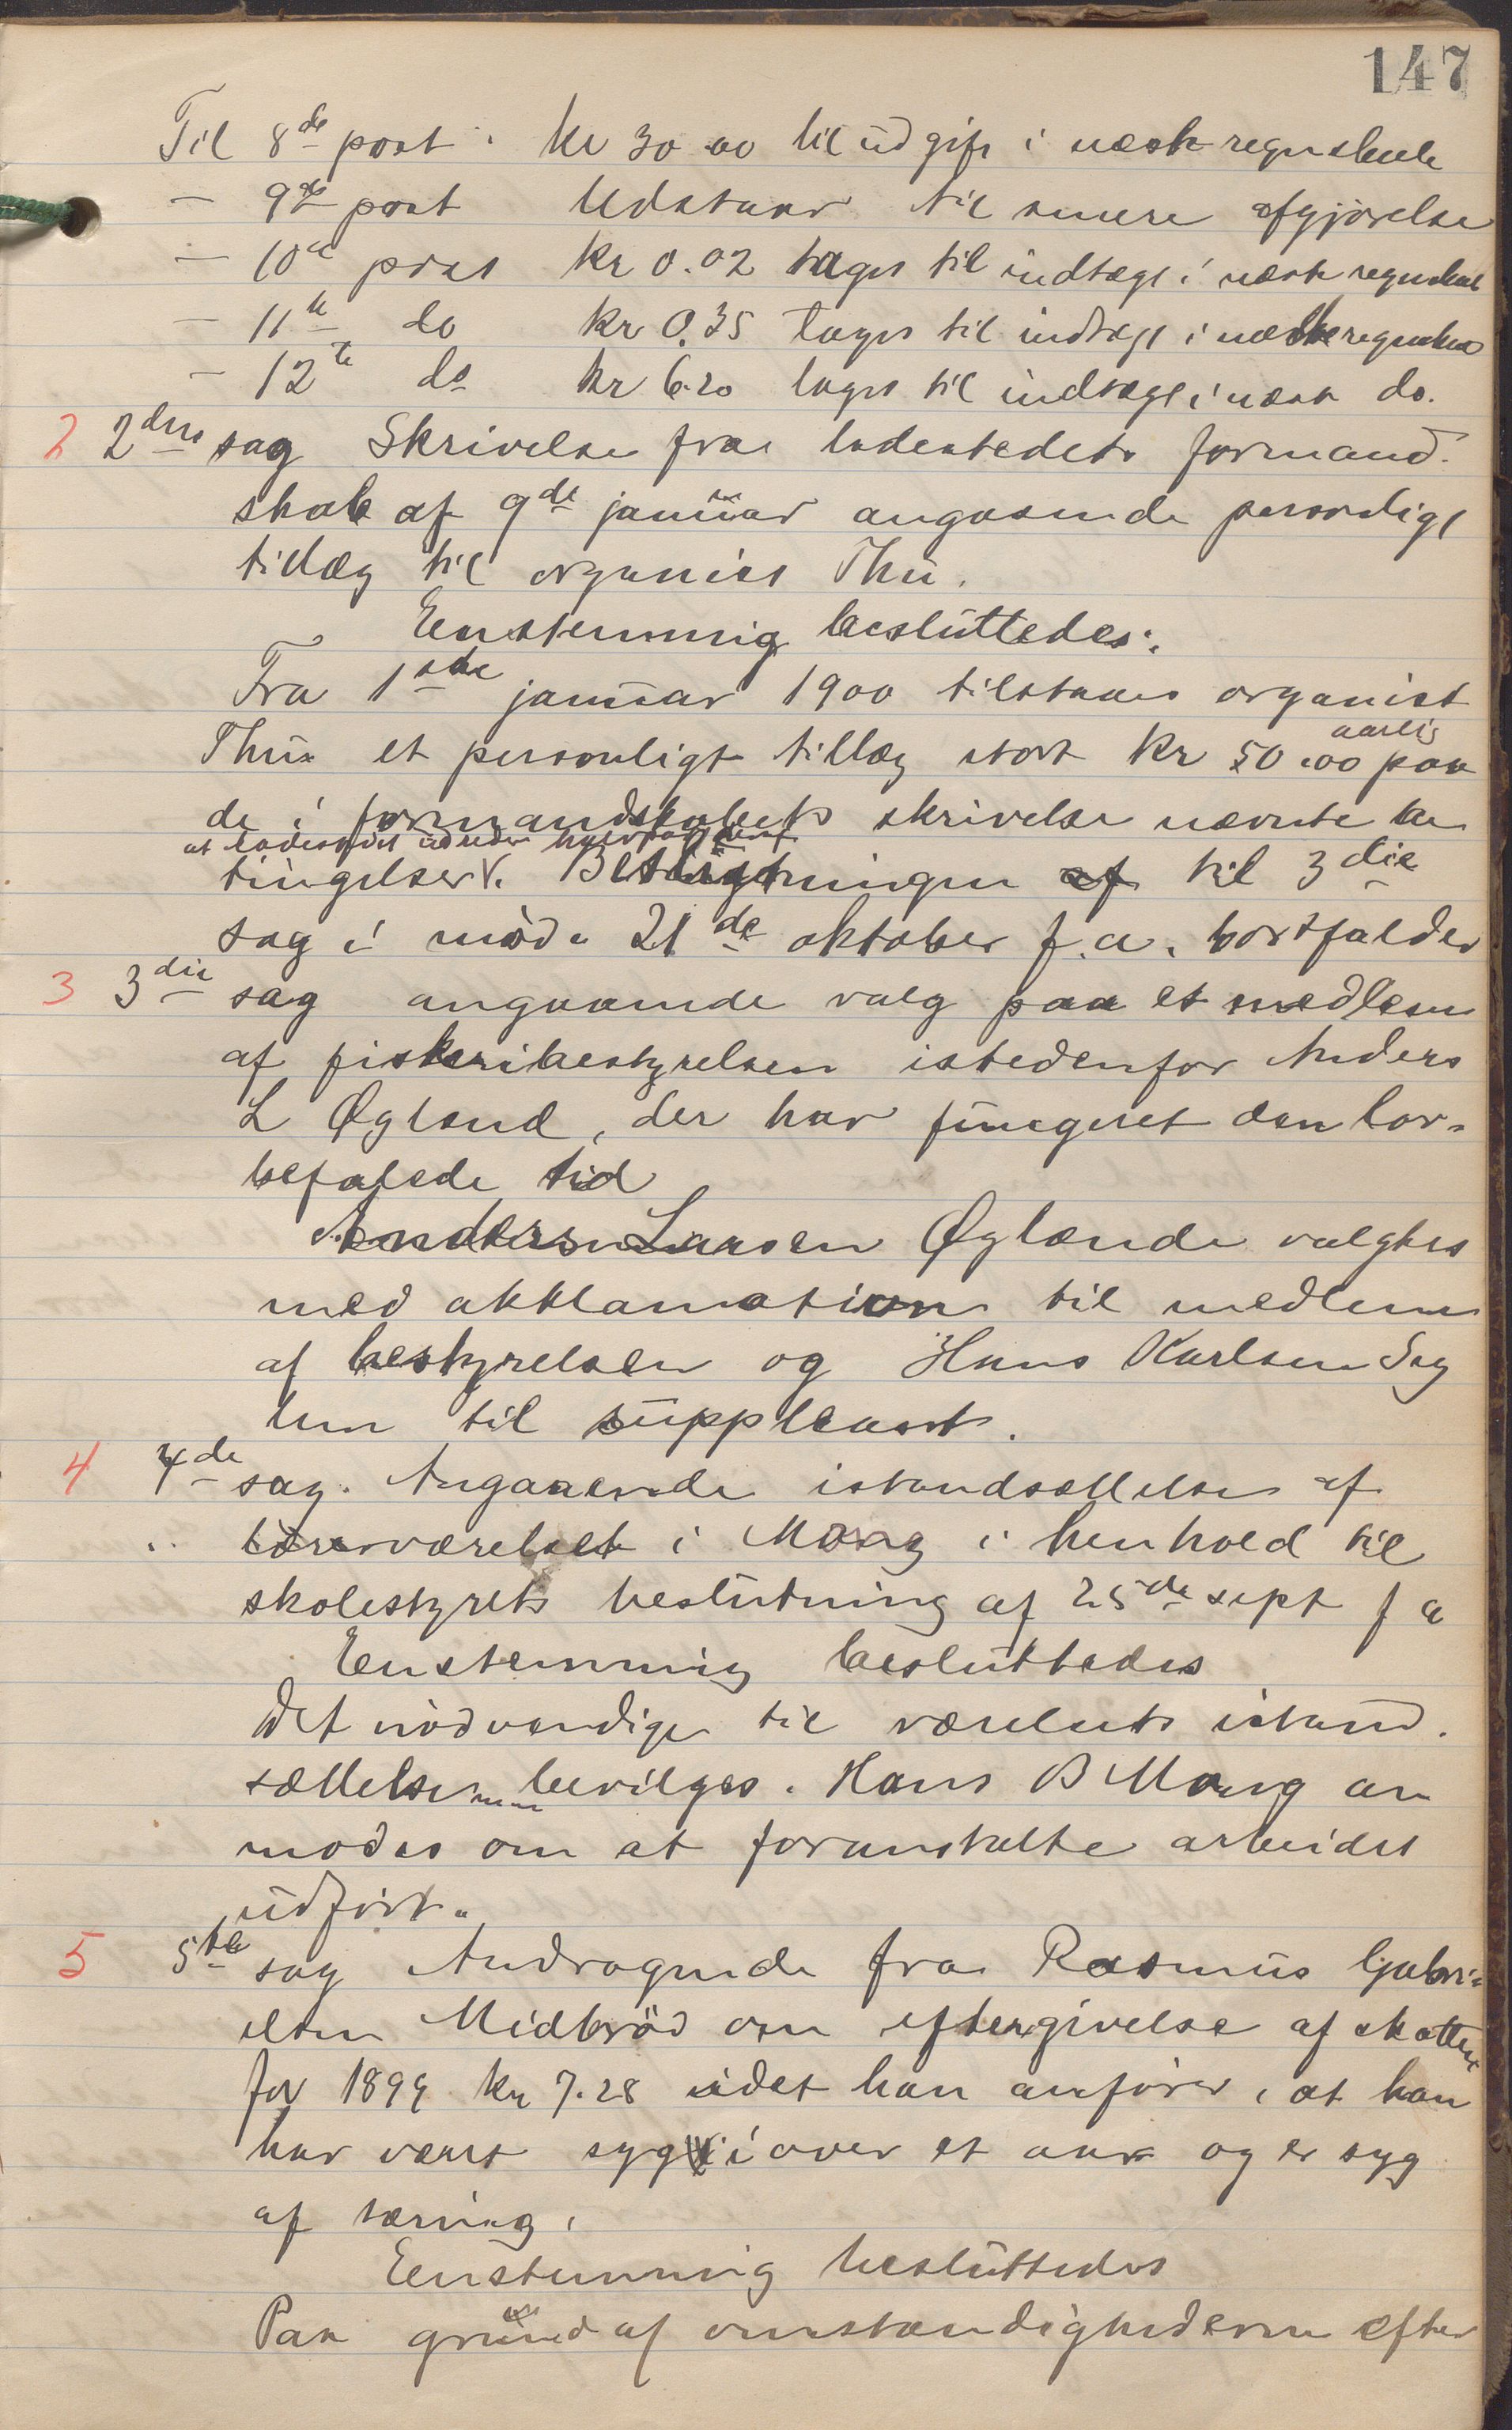 147
Til 8de post. kr 30.00 til udgift i næste regnskab
— 9de post Udstaar til senere afgjørelse
— 10de post kr 0.02 tages til indtægt i næste regnskab
— 11te do kr 0.35 tages til indtægt i næste regnskab
— 12te do kr 6.20 tages til indtægt i næste do.
2 2den sag Skrivelse fra ladestedets formand-
skab af 9de januar angaaende personligt
tillæg til organist Thu.
Enstemmig besluttedes:
Fra 1ste januar 1900 tilstaaes organist
aarlig
Thu et personligt tillæg stort kr 50.00 paa
de i formandskabets skrivelse nævnte be
at ladestedet udreder halvparten
tingelser. Beslutningen af til 3die
sag i møde 21de oktober f.a. bortfalder
3 3die sag angaaende valg paa et medlem
af fiskeribestyrelsen istedenfor Anders
L Øgland, der har fungeret den lov-
befalede tid
Anders Larsen Øglænde valgtes
med akklamation til medlem
af bestyrelsen og Hans Karlsen Seg
lem til suppleant.
4 4de sag. Angaaende istandsættelse af
læreværelset i Mong i henhold til
skolestyrets beslutning af 25de sept f a
Enstemmig besluttedes
Det nødvendige til værelsets istand-
sættelse bevilges. Hans B Mong an
modes om at foranstalte arbeidet
udført.
5 5te sag Andragende fra Rasmus Gabri-
elsen Midbrød om eftergivelse af skatten
for 1899 kr 7.28 idet han anfører, at han
har været syg i over et aar og er syg
af tæring.
Enstemmig besluttedes
Paa grund af omstændighederne efter